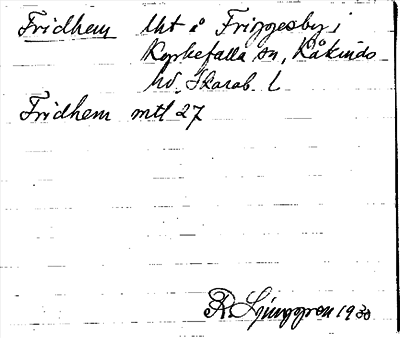 Fridhem lht å Friggesby i
Kyrkefalla sn, Kåkinds
hd. Skarab. l
Fridhem mtl 27
R Ljunggren 1930